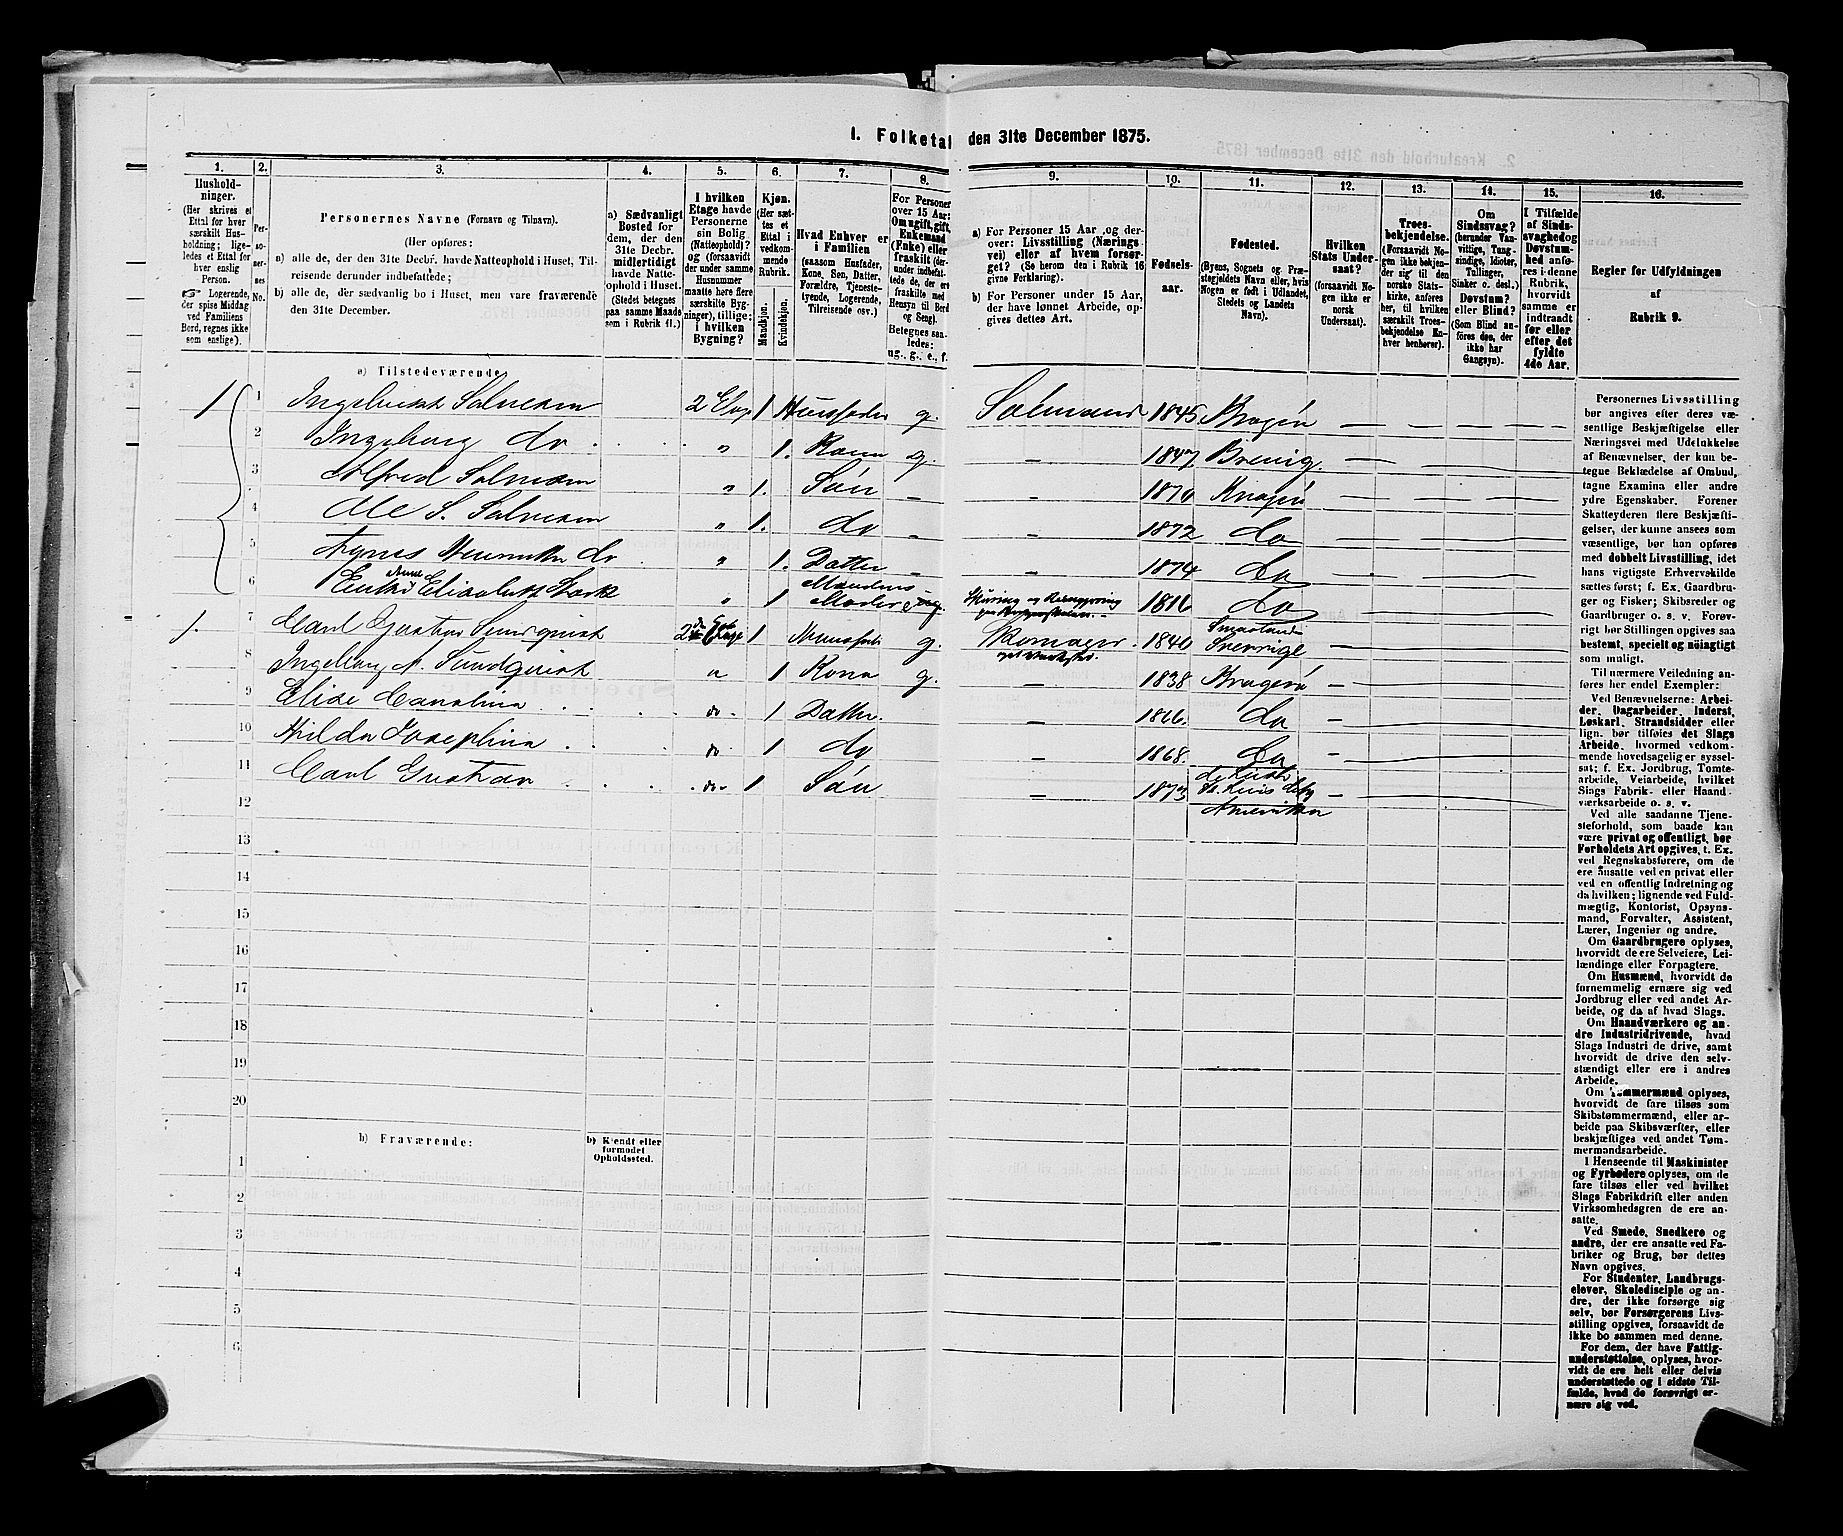 1. Folketal den 31te December 1875.
1.
Hushold-
ninger.
(Her skrives et
Ettal for hver
særskilt Hus-
holdning; lige-
ledes et Ettal for
hver enslig
Person.
Logerende,
der spise Middag
ved Familiens
Bord, regnes ikke
som enslige).
2.
Per-
so-
ner-
nes
No.
3.
Personernes Navne (Fornavn og Tilnavn).
(Her opføres:
a) alle de, der den 31te Decbr. havde Natteophold i Huset, Til-
reisende derunder indbefattede;
b) alle de, der sædvanlig bo i Huset, men vare fraværende
den 31te December.
4.
a) Sædvanligt
Bosted for
dem, der den
31te Decbr.
midlertidigt
havde Natte-
ophold i Huset.
(Stedet betegnes
paa samme Maade
som i Rubrik 11.)
5.
I hvilken
Etage havde
Personerne
sin Bolig
(Natteophold)?
og (forsaavidt
der under samme
Husnummer
maatte høre flere
særskilte Byg-
ninger), tillige:
i hvilken
Bygning?
6.
Kjøn.
(Her sæt-
tes et
Ettal i
vedkom-
mende
Rubrik.
Mandkjøn.
Kvindekjøn.
7.
Hvad Enhver er
i Familien
(saasom Husfader,
Kone, Søn, Datter,
Forældre, Tjeneste-
tyende, Logerende,
Tilreisende osv.)
8.
For Personer
over 15 Aar:
Om ugift, gift,
Enkemand
(Enke) eller
fraskilt
Betegnes saa-
ledes:
ug., g., e., f.
9.
a) For Personer 15 Aar og der-
over: Livsstilling (Nærings-
vei) eller af hvem forsør-
get? (Se herom den i Rubrik 16
givne Forklaring).
b) For Personer under 15 Aar,
der have lønnet Arbeide, op-
gives dettes Art.
10.
Fødsels-
aar.
11.
Fødested.
(Byens, Sognets og Præ-
stegjeldets Navn eller, hvis
Nogen er født i Udlandet,
Stedets og Landets
Navn).
12.
Hvilken
Stats Under-
saat?
(forsaavidt No-
gen ikke er
norsk
Undersaat).
13.
Troes-
bekjendelse.
(Forsaavidt No-
gen ikke bekjen-
der sig til den
norske Stats-
kirke, anføres
her, til hvilken
særskilt Troes-
bekjendelse En-
hver henhører).
14.
Om
Sindssvag?
(herunder Van-
vittige, Tung-
sindige, Idioter,
Tullinger,
Sinker o. desl.)
Døvstum?
eller Blind?
(Som Blind an-
føres den, der
ikke har
Gangsyn).
15.
I Tilfælde
af Sinds-
svaghed og
Døvstum-
hed anfø-
res i denne
Rubrik,
hvorvidt
samme er
indtraadt
før eller
efter det
fyldte
4de Aar.
16.
Regler for Udfyldningen
af
Rubrik 9.
a) Tilstedeværende
1 1 Ingebrikt Salvesen 2 Etag 1 Husfader g. Sømand 1845 Kragerø
2 Ingeborg do " 1. Kone g. 1847 Brevig.
3 Alfred Salvesen " 1. Søn 1870 Kragerø
4 Ole S. Salvesen " 1. do 1872 do
5 Agnes do " 1. Datter 1874 do
6 Enke Elisabeth " 1 Mandens Moder 1816 do
1. 7 Carl Gustav Sundquist 2 Etage 1 Husfader g. Skomager 1840 Smaaland Sverrige
8 Ingeborg A. Sundquist " 1 Kone g. 1838 Kragerø
9 Elise Carolina do 1 Datter. 1866. do
10 Hilda Josephina do 1 do 1868. do
11 Carl Gustav do 1 Søn 1873 St. Luis Amerika
12
13
14
15
16
17
18
19
20
b) Fraværende:
b) Kjendt eller
formodet
Opholdssted.
1
2
3
4
5
6
Personernes Livsstilling
bør angives efter deres væ-
sentlige Beskjæftigelse eller
Næringsvei med Udelukkelse
af Benævnelser, der kun be-
tegne Beklædelse af Ombud,
tagne Examina eller andre
ydre Egenskaber. Forener
Skatteyderen flere Beskjæfti-
gelser, der kunne ansees som
væsentlige, bør han opføres
med dobbelt Livsstilling, idet
hans vigtigste Erhvervskilde
sættes først; f. Ex. Gaardbru-
ger og Fisker; Skibsreder og
Gaardbruger o. s. v. Forøv-
rigt bør Stillingen opgives saa
bestemt, specielt og nøiagtigt
som muligt.
Til nærmere Veiledning an-
føres her endel Exempler:
Ved Benævnelserne: Arbei-
der, Dagarbeider, Inderst,
Løskarl, Strandsidder eller
lign. bør tilføies det Slags
Arbeide, hvormed vedkom-
mende hovedsagelig er syssel-
sat; f. Ex. Jordbrug, Tomte-
arbeide, Veiarbeide, hvilket
Slags Fabrik- eller Haand-
værksarbeide o. s. v.
Ved alle saadanne Tjene-
steforhold, som baade kan
være privat og offentligt, bør
Forholdets Art opgives, t. Ex.
ved Regnskabsførere, om de
ere ansatte ved en privat eller
ved en offentlig Indretning og
da hvilken; lignende ved Fuld-
mægtig, Kontorist, Opsyns-
mand, Forvalter, Assistent,
Lærer, Ingeniør og andre.
Om Gaardbrugere oplyses,
hvorvidt de ere Selveiere, Lei-
lændinge eller Forpagtere.
Om Husmænd, hvorvidt de
fornemmelig ernære sig ved
Jordbrug eller ved andet Ar-
beide, og da af hvad Slags.
Om Haandværkere og an-
dre Industridrivende, hvad
Slags Industri de drive, samt
hvorvidt de drive den selv-
stændigt eller ere i andres
Arbeide.
Om Tømmermænd oplyses,
hvorvidt de fare tilsøs som
Skibstømmermænd, eller ar-
beide paa Skibsværfter, eller
beskjæftiges ved andet Tøm-
mermandsarbeide.
I Henseende til Maskinister
og Fyrbødere oplyses, om de
fare tilsøs eller ved hvilket
Slags Fabrikdrift eller anden
Virksomhedsgren de ere an-
satte.
Ved Smede, Snedkere og
andre, der ere ansatte ved Fa-
briker og Brug, bør dettes
Navn opgives.
For Studenter, Landbrugs-
elever, Skoledisciple og an-
dre, der ikke forsørge sig
selv, bør Forsørgerens Livs-
stilling opgives, forsaavidt de
ikke bo sammen med denne.
For dem, der have Fattig-
understøttelse, oplyses, hvor-
vidt de ere helt eller delvis
understøttede og i sidste Til-
fælde, hvad de forøvrigt er-
nære sig ved.